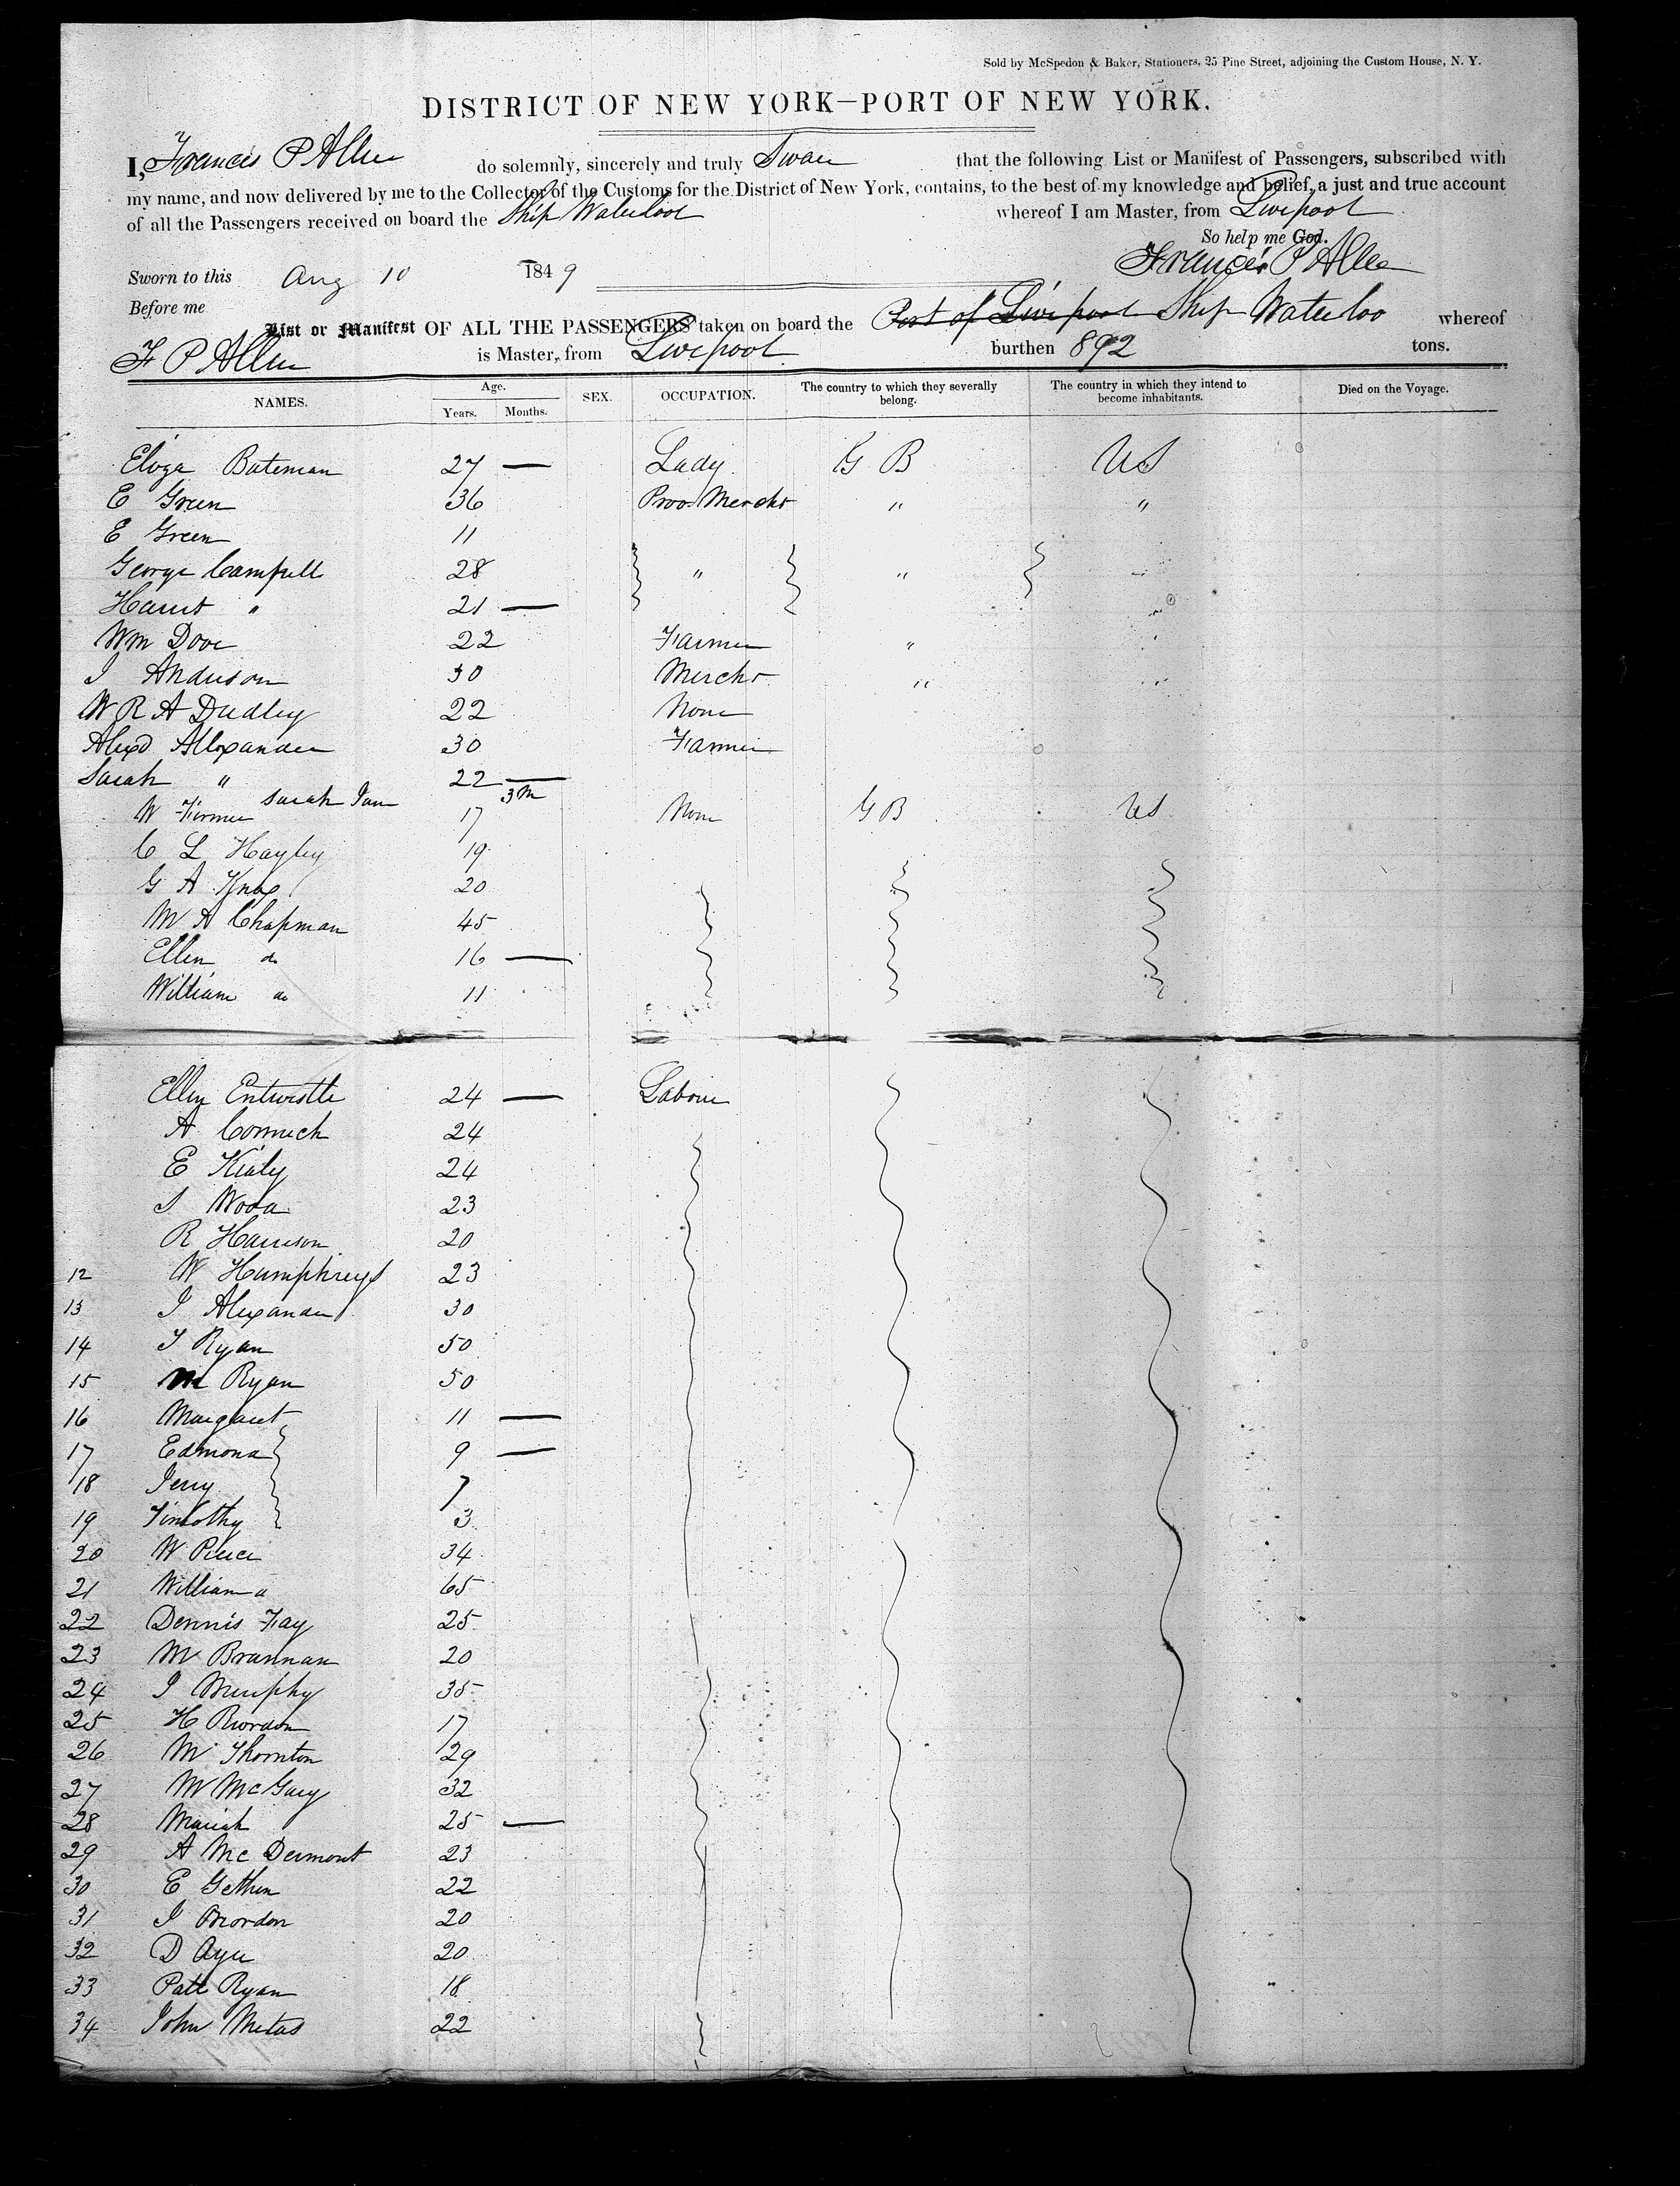 Sold by McSpedon & Baker, Stationers, 25 Pine Street, adjoining the Custom House, N. Y.
DISTRICT OF NEW YORK—PORT OF NEW YORK.
I, Francis P Allen do solemnly, sincerely and truly Swear that the following List or Manifest of Passengers, subscribed with
my name, and now delivered by me to the Collector of the Customs for the District of New York, contains, to the best of my knowledge and belief, a just and true account
of all the Passengers received on board the Ship Waterloo whereof I am Master, from Liverpool
So help me God.
Sworn to this Aug 10 1849 Francis P Allen
Before me
List or Manifest OF ALL THE PASSENGERS taken on board the Port of Liverpool Ship Waterloo whereof
F P Allen is Master, from Liverpool burthen 892 tons.
NAMES. Age. Years. Months. SEX. OCCUPATION. The country to which they severally belong. The country in which they intend to become inhabitants. Died on the Voyage.
Eloza Bateman 27 — Lady G B US
E Green 36 Prov Mercht " "
E Green 11
George Campell 28 " " "
Harriet " 21 — "
Wm Dove 22 Farmer " "
J Anderson 30 Mercht " "
W R A Dudley 22 None
Alexd Allexander 30 Farmer
Sarah " 22 —
Sarah Jane 3m
W Firmer 17 None G B US
C L Hayley 19
G A Knox 20
M A Chapman 45
Ellen do 16 —
William do 11
Ellen Entwistle 24 — Labour
A Cormick 24
E Kialy 24
S Wood 23
R Harrison 20
12 W Humphreys 23
13 J Alexander 30
14 T Ryan 50
15 M Ryan 50
16 Margaret 11 —
17 Edmond 9 —
18 Jerry 7
19 Timothy 3
20 W Pierce 34
21 William " 65
22 Dennis Fay 25
23 M Brannan 20
24 J Murphy 35
25 H Riordon 17
26 M Thornton 29
27 W McGary 32
28 Mariah 25 —
29 A McDermont 23
30 E Gethen 22
31 J Riordon 20
32 D 20
33 Patt Ryan 18
34 John 22